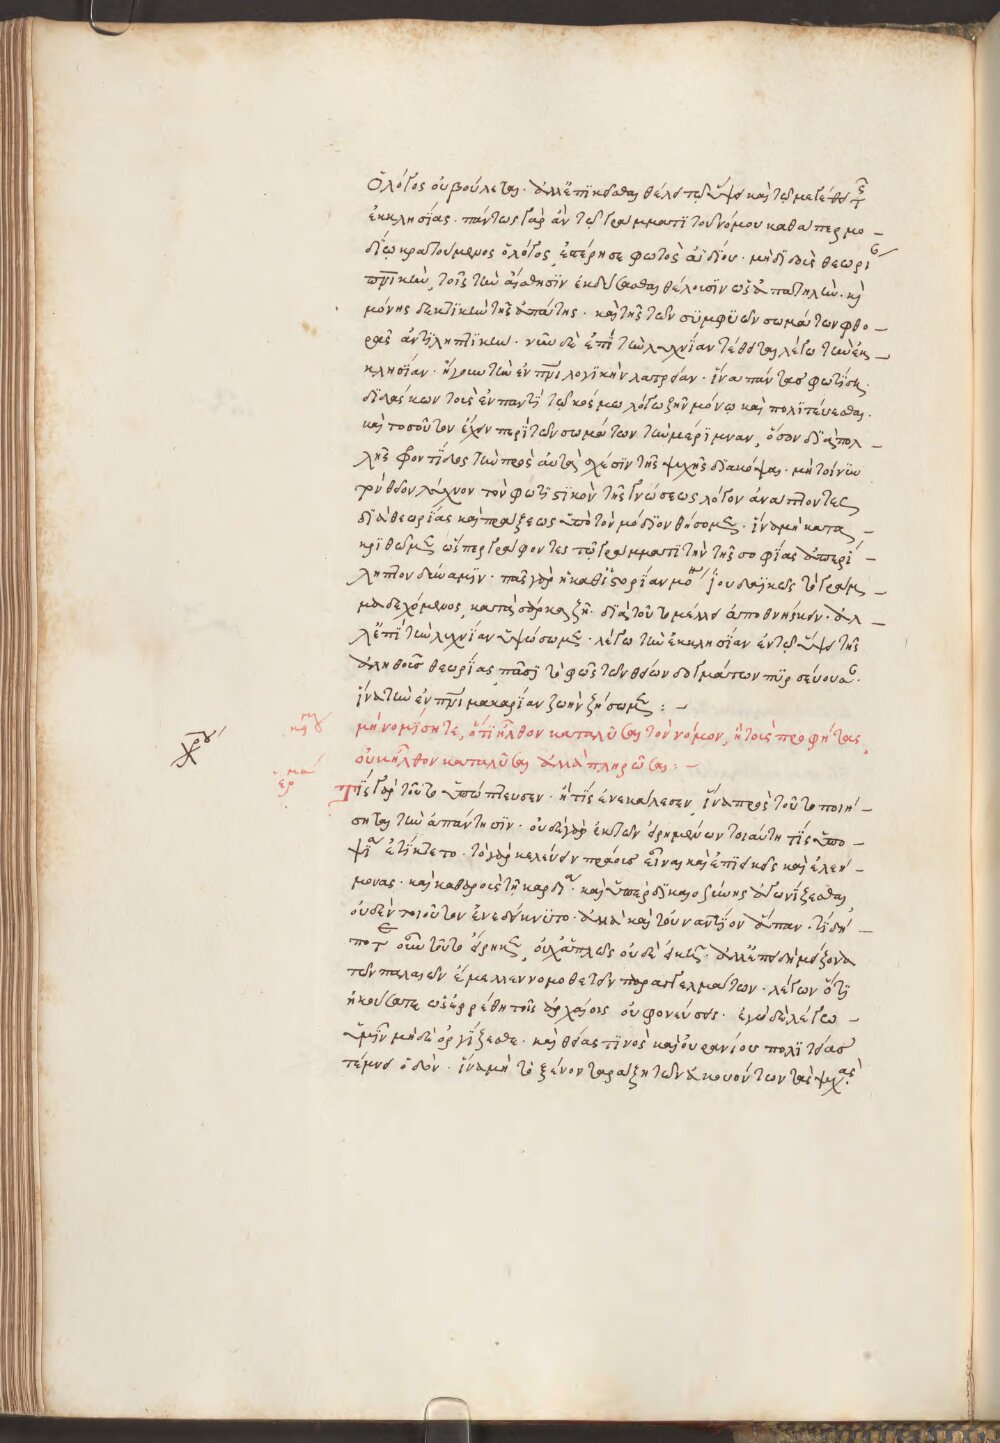 Ὁ λόγος οὐ βούλεται· ἀλλ' ἐπικεῖσθαι θέλει τῷ ὕψει καὶ τῷ μεγέθει τῆς
ἐκκλησίας· πάντως γὰρ ἂν τῷ γράμματι τοῦ νόμου καθάπερ μο-
δίῳ κρατούμενος ὁ λόγος, ἐστέρησε φωτὸς ἀϊδίου· μὴ διδοὺς θεωρί
πνικὴν, τοῖς τὴν αἴσθησιν ἐκδύσασθαι θέλουσιν ὡς ἀπατηλὴν· κὶ
μόνης δεκτικὴν τῆς ἀπάτης· καὶ τῆς τῶν συμφυῶν σωμάτων φθο-
ρᾶς ἀντιληπτικὴν· νῦν δὲ ἐπὶ τὴν λυχνίαν τέθειται λέγω τὴν ἐκ-
κλησίαν· ἤγουν τὴν ἐν πνι λογικὴν λατρείαν· ἵνα πάντας φωτίσῃ.
διδάσκων τοὺς ἐν παντὶ τῷ κόσμῳ λόγῳ ζῆν μόνῳ καὶ πολιτεύεσθαι.
καὶ τοσοῦτον ἔχειν περὶ τῶν σωμάτων τὴν μέριμναν, ὅσον διὰ πολ-
λῆς φροντίδος τὴν πρὸς αὐτὰ σχέσιν τῆς ψυχῆς διακόψαι· μὴ τοίνυν
τὸν θεῖον λύχνον τὸν φωτιστικὸν τῆς γνώσεως λόγον ἀνάπτοντες
διὰ θεωρίας καὶ πράξεως ὑπὸ τὸν μόδιον θήσομεν· ἵνα μὴ κατα-
κριθῶμεν ὡς περιγράφοντες τῷ γράμματι τὴν τῆς σοφίας ἀπερί-
ληπτον δύναμιν· πᾶς γὰρ ἡ καθ' ἱστορίαν μόνην ἰουδαϊκῶς τὸ γράμ-
μα δεχόμενος, κατὰ σάρκα ζῇ· διὰ τοῦτο μέλλει ἀποθνήσκειν· ἀλ-
λ' ἐπὶ τὴν λυχνίαν ὑψώσωμεν· λέγω τὴν ἐκκλησίαν ἐν τῷ ὕψει τῆς
ἀληθοῦς θεωρίας πᾶσι τὸ φῶς τῶν θείων δογμάτων πυρσεύουσαν.
ἵνα τὴν ἐν πνι μακαρίαν ζωὴν ζήσωμεν :-
μὴ νομίσητε, ὅτι ἦλθον καταλῦσαι τὸν νόμον, ἢ τοὺς προφήτας,
οὐκ ἦλθον καταλῦσαι ἀλλὰ πληρῶσαι :-
Τίς γὰρ τοῦτο ὑπώπτευσεν· ἢ τίς ἐνεκάλεσεν, ἵνα πρὸς τοῦτο ποιή-
σηται τὴν ἀπάντησιν· οὐδὲ γὰρ ἐκ τῶν εἰρημένων τοιαύτη τίς ὑπο-
ψία ἐτίκτετο· τὸ γὰρ κελεύειν πράους εἶναι καὶ ἐπιεικεῖς καὶ ἐλεή-
μονας· καὶ καθαροὺς τῇ καρδία· καὶ ὑπὲρ δικαιοσύνης ἀγωνίζεσθαι,
οὐδὲν τοιοῦτον ἐνεδείκνυτο· ἀλλὰ καὶ τοὐναντίον ἅπαν· τί δή-
ποτε οὖν τοῦτο εἴρηκεν, οὐχ ἁπλῶς οὐδὲ εἰκῆ· ἀλλ' ἐπειδὴ μείζονα
τῶν παλαιῶν ἔμελλεν νομοθετεῖν παραγγελμάτων· λέγων ὅτι
ἠκούσατε ὡς ἐρρέθη τοῖς ἀρχαίοις οὐ φονεύσεις· ἐγὼ δὲ λέγω-
ὑμῖν μηδὲ ὀργίζεσθε· καὶ θείας τινὸς καὶ οὐρανίου πολιτείας
τέμνει ὁδόν· ἵνα μὴ τὸ ξένον ταράξῃ τῶν ἀκουόντων τὰς ψυχὰς